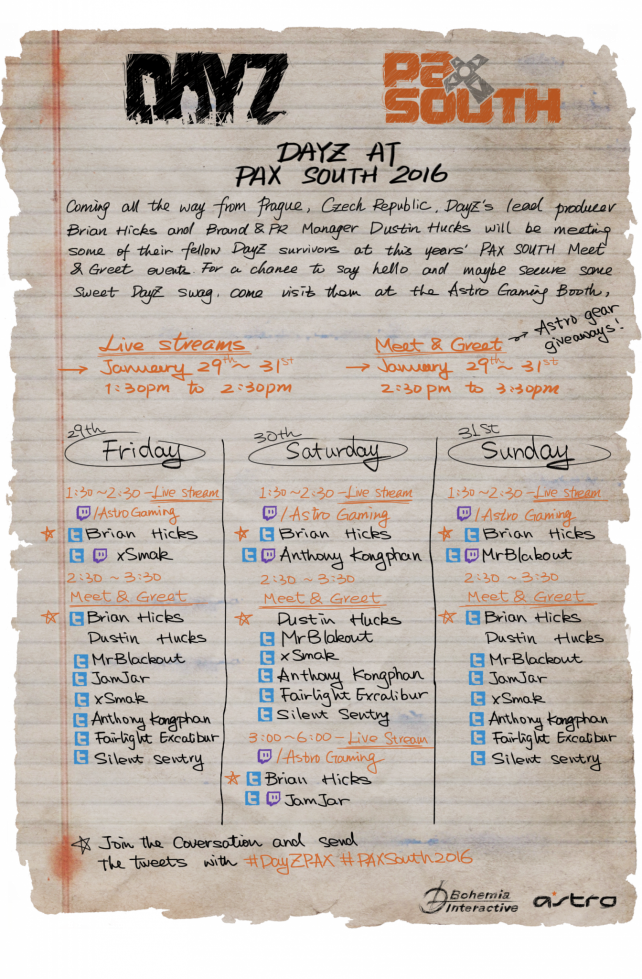 DAYZ
PAX
SOUTH
DAYZ AT
PAX SOUTH 2016
Coming all the way from Prague, Czech Republic, DayZ's lead producer
Brian Hicks and Brand & PR Manager Dustin Hucks will be meeting
some of their fellow DayZ survivors at this years' PAX SOUTH Meet
& Greet events. For a chance to say hello and maybe secure some
Sweet DayZ swag. come visit them at the Astro Gaming Booth,
Live streams
→ January 29th ~ 31st
1:30pm to 2:30pm
Meet & Greet → Astro gear
giveaways!
→ January 29th ~ 31st
2:30pm to 3:30pm
29th
Friday
1:30~2:30 - Live stream
/Astro Gaming
☆ Brian Hicks
xSmak
2:30 ~ 3:30
Meet & Greet
☆ Brian Hicks
Dustin Hucks
MrBlackout
JamJar
xSmak
Anthony Kongphan
Fairlight Excalibur
Silent sentry
30th
Saturday
1:30~2:30 - Live stream
/Astro Gaming
☆ Brian Hicks
Anthony Kongphan
2:30 ~ 3:30
Meet & Greet
☆ Dustin Hucks
MrBlakout
xSmak
Anthony Kongphan
Fairlight Excalibur
Silent Sentry
3:00~6:00 - Live Stream
/Astro Gaming
☆ Brian Hicks
JamJar
31st
Sunday
1:30~2:30 - Live stream
/Astro Gaming
☆ Brian Hicks
MrBlakout
2:30 ~ 3:30
Meet & Greet
☆ Brian Hicks
Dustin Hucks
MrBlackout
JamJar
xSmak
Anthony Kongphan
Fairlight Excalibur
Silent sentry
☆ Join the Coversation and send
the tweets with #DayZPAX #PAXSouth2016
Bohemia
Interactive
astro